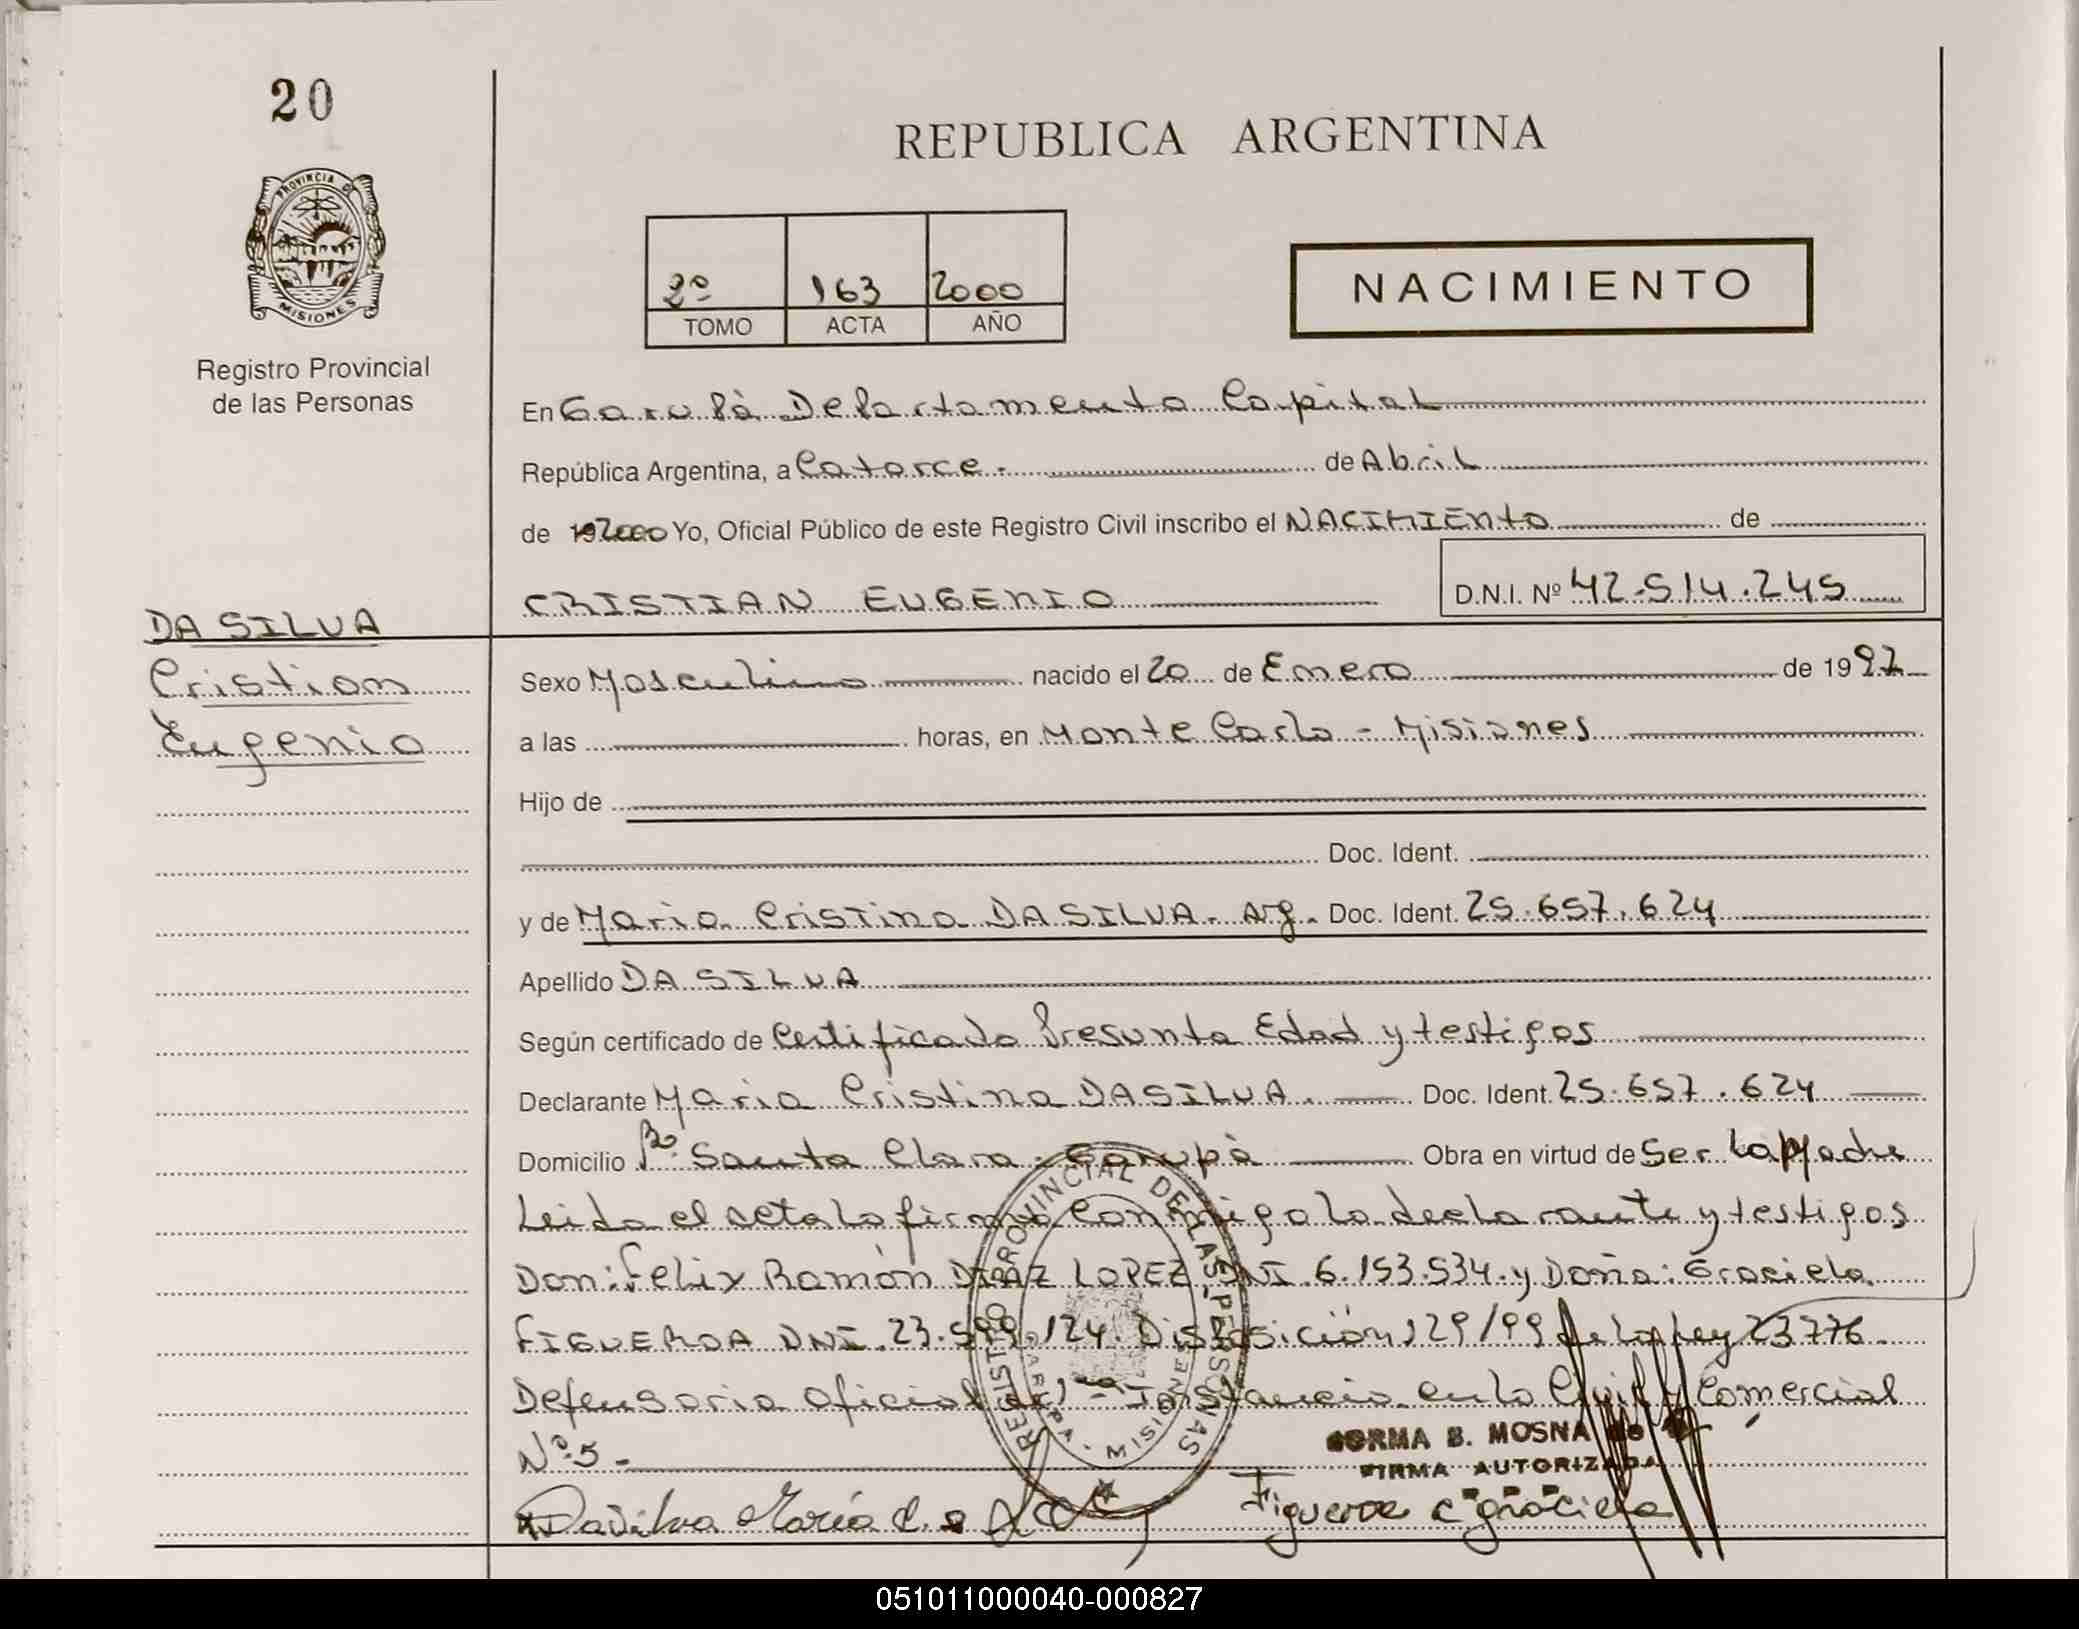 20
PROVINCIA DE
MISIONES
Registro Provincial
de las Personas
REPUBLICA ARGENTINA
2º 163 2000
TOMO ACTA AÑO
NACIMIENTO
En Garupà Departamento Capital
República Argentina, a Catorce.- de Abril
de 192000 Yo, Oficial Público de este Registro Civil inscribo el NACIMIENTO de
CRISTIAN EUGENIO D.N.I. Nº 42.514.245
DA SILVA
Cristian
Eugenio
Sexo Masculino nacido el 20 de Enero de 1997
a las horas, en Monte Carlo - Misiones
Hijo de
Doc. Ident.
y de Maria Cristina DA SILVA. Arg. Doc. Ident. 25.657.624
Apellido DA SILVA
Según certificado de Certificado Presunta Edad y testigos
Declarante Maria Cristina DA SILVA. Doc. Ident. 25.657.624
Domicilio Bº. Santa Clara. Garupà Obra en virtud de Ser La Madre
Leida el acta la firma conmigo la declarante y testigos
Don: Felix Ramón DIAZ LOPEZ DNI 6.153.534. y Doña: Graciela
FIGUEROA DNI. 23.599.124. Disposición 129/99 de la Ley 23776
Defensoria Oficial de 1ra Instancia en lo Civil y Comercial
Nº.5.-
REGISTRO PROVINCIAL DE LAS PERSONAS
GARUPA - MISIONES
NORMA B. MOSNA de
FIRMA AUTORIZADA
Da Silva María C.
Figueroa C Graciela
051011000040-000827